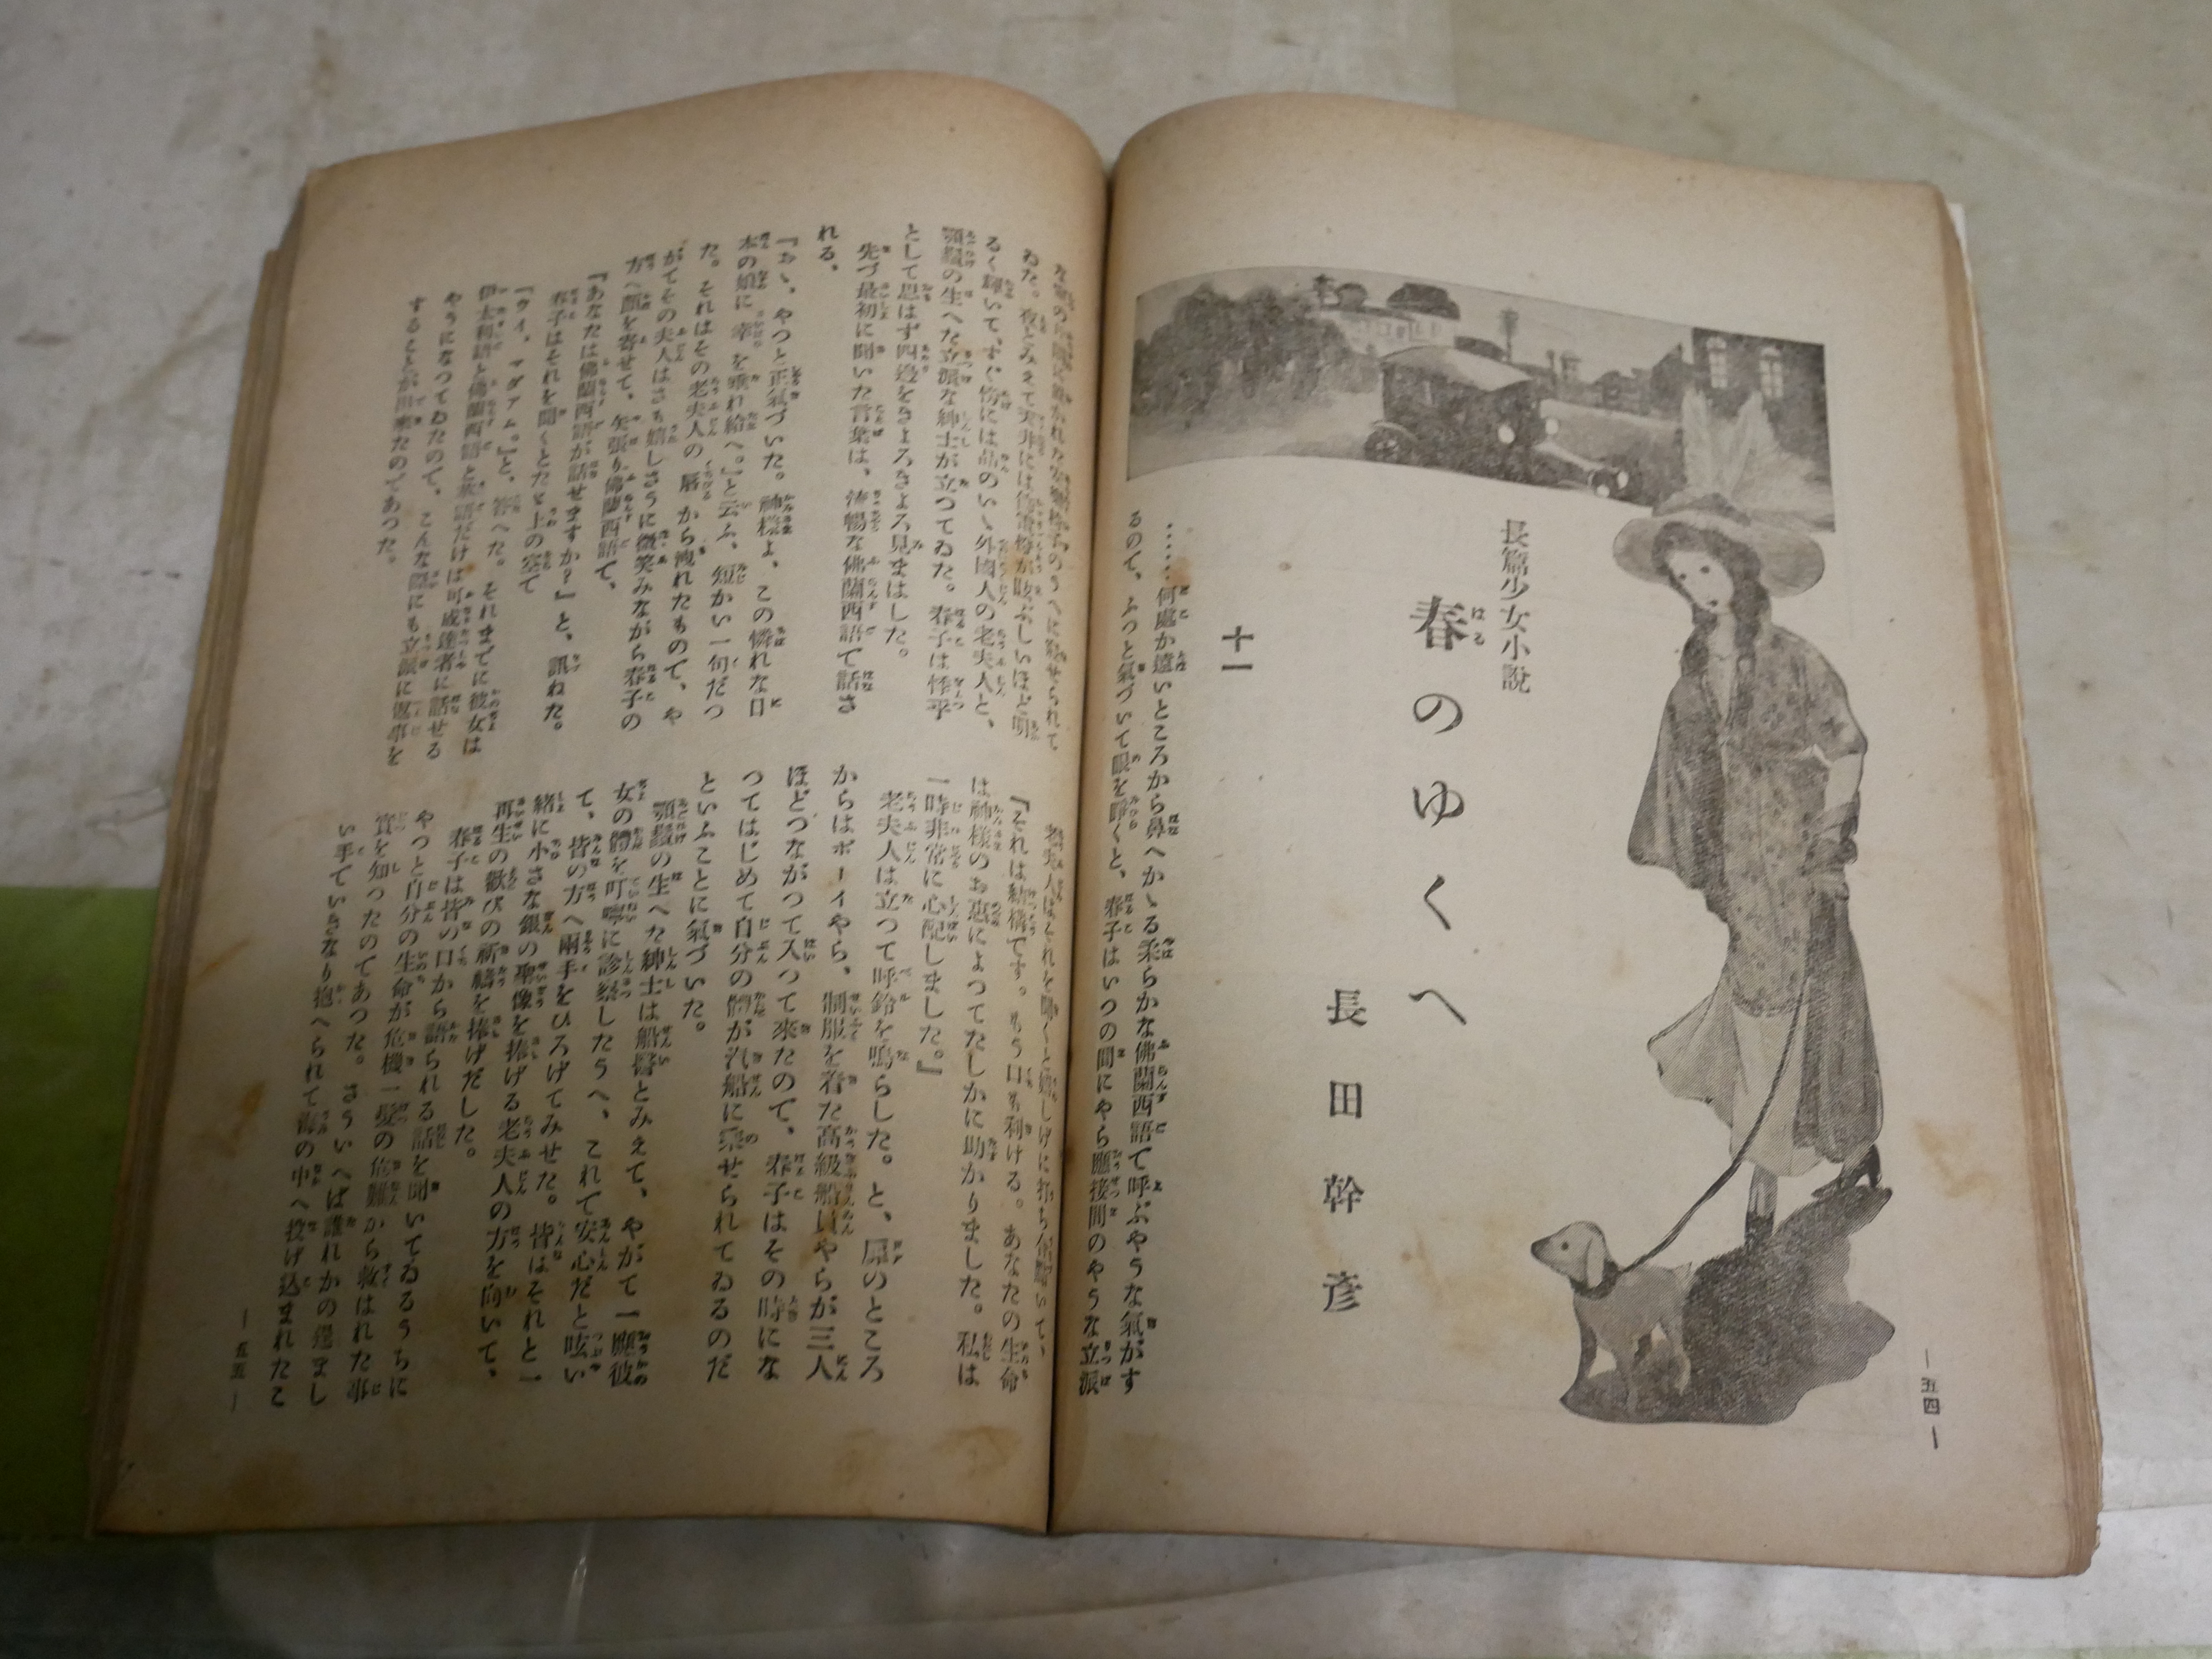 長篇少女小説
春のゆくへ
長田幹彦
十一
……何處か遠いところから鼻へかゝる柔らかな佛蘭西語で呼ぶやうな氣がす
るので、ふつと氣づいて眼を睜くと、春子はいつの間にやら應接間のやうな立派
―五四―
ゐた。夜とみえて天井には
るく輝いて、すぐ傍には品のいゝ外國人の老夫人と、
顎鬚の生へた立派な紳士が立つてゐた。春子は怪乎
として思はず四邊をきよろきよろ見まはした。
先づ最初に聞いた言葉は、流暢な佛蘭西語で話さ
れる、
『おゝ、やつと正氣づいた。神樣よ、この憐れな日
本の娘に幸を垂れ給へ。』と云ふ、短かい一句だつ
た。それはその老夫人の唇から洩れたもので、や
がてその夫人はさも嬉しさうに微笑みながら春子の
方へ顏を寄せて、矢張り佛蘭西語で、
『あなたは佛蘭西語が話せますか？』と、訊ねた。
春子はそれを聞くとたゞ上の空で
『ウイ、マダアム。』と、答へた。それまでに彼女は
伊太利語と佛蘭西語と英語だけは可成達者に話せる
やうになつてゐたので、こんな際にも立派に返事を
することが出來たのであつた。
老夫人はそれを聞くと嬉しげに
『それは結構です。もう口も利ける。あなたの生命
は神樣のお惠によつてたしかに助かりました。私は
一時非常に心配しました。』
老夫人は立つて呼鈴を鳴らした。と、扉のところ
からはボーイやら、制服を着た高級船員やらが三人
ほどつながつて入つて來たので、春子はその時にな
つてはじめて自分の體が汽船に乘せられてゐるのだ
といふことに氣づいた。
顎鬚の生へた紳士は船醫とみえて、やがて一應彼
女の體を叮嚀に診察したうへ、これで安心だと呟い
て、皆の方へ兩手をひろげてみせた。皆はそれと一
緒に小さな銀の聖像を捧げる老夫人の方を向いて、
再生の歡びの祈禱を捧げだした。
春子は皆の口から語られる話を聞いてゐるうちに
やつと自分の生命が危機一髮の危難から救はれた事
實を知つたのであつた。さういへば誰れかの逞まし
い手でいきなり抱へられて海の中へ投げ込まれたこ
―五五―